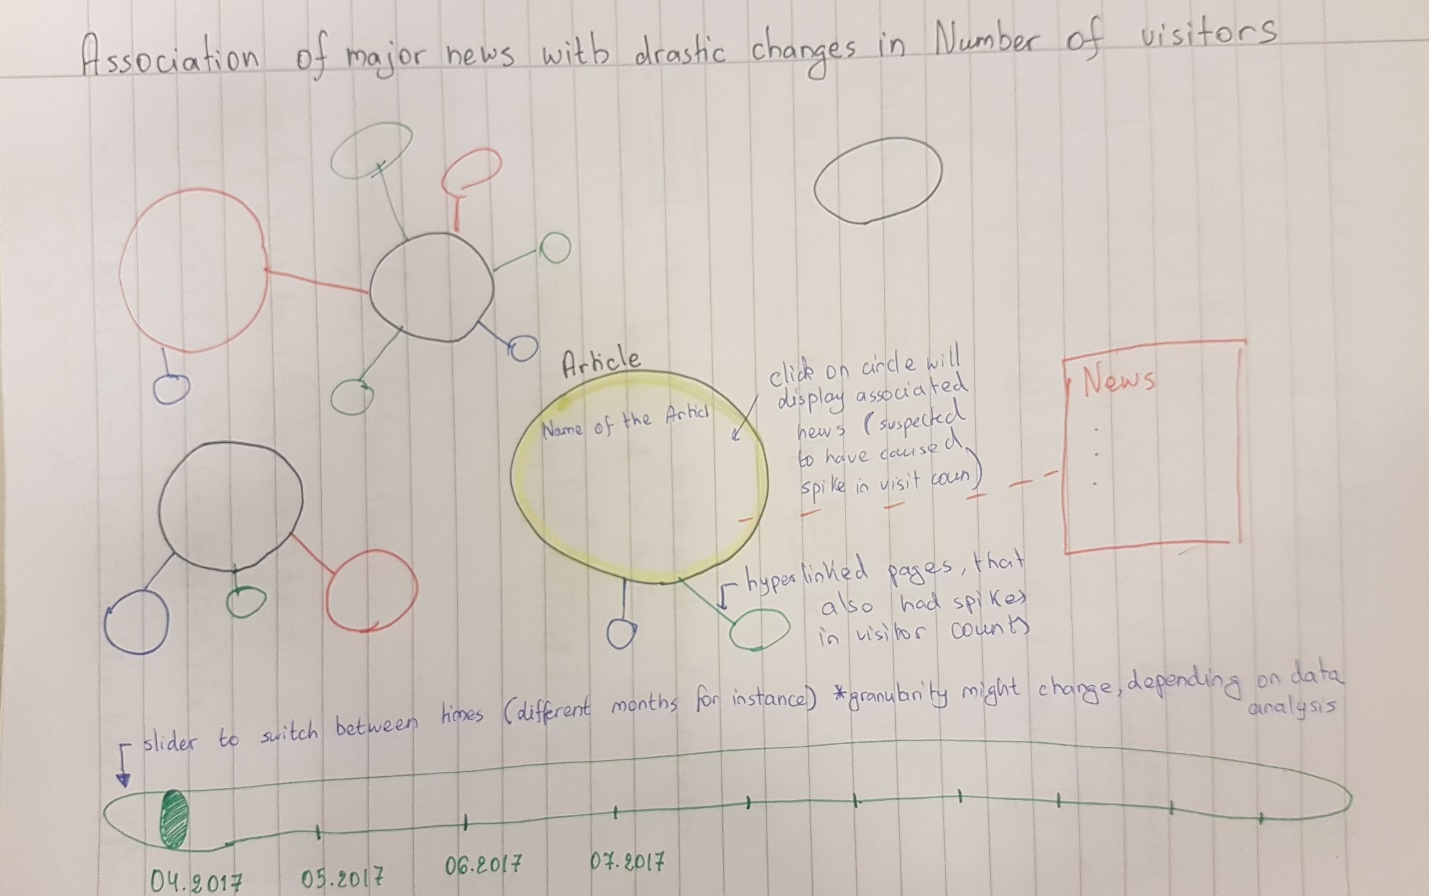 Association of major news with drastic changes in Number of visitors
Article
Name of the Articl
click on circle will
display associated
news (suspected
to have caused
spike in visit coun)
News
hyperlinked pages, that
also had spikes
in visitor counts
slider to switch between times (different months for instance) *granularity might change, depending on data
analysis
04.2017 05.2017 06.2017 07.2017